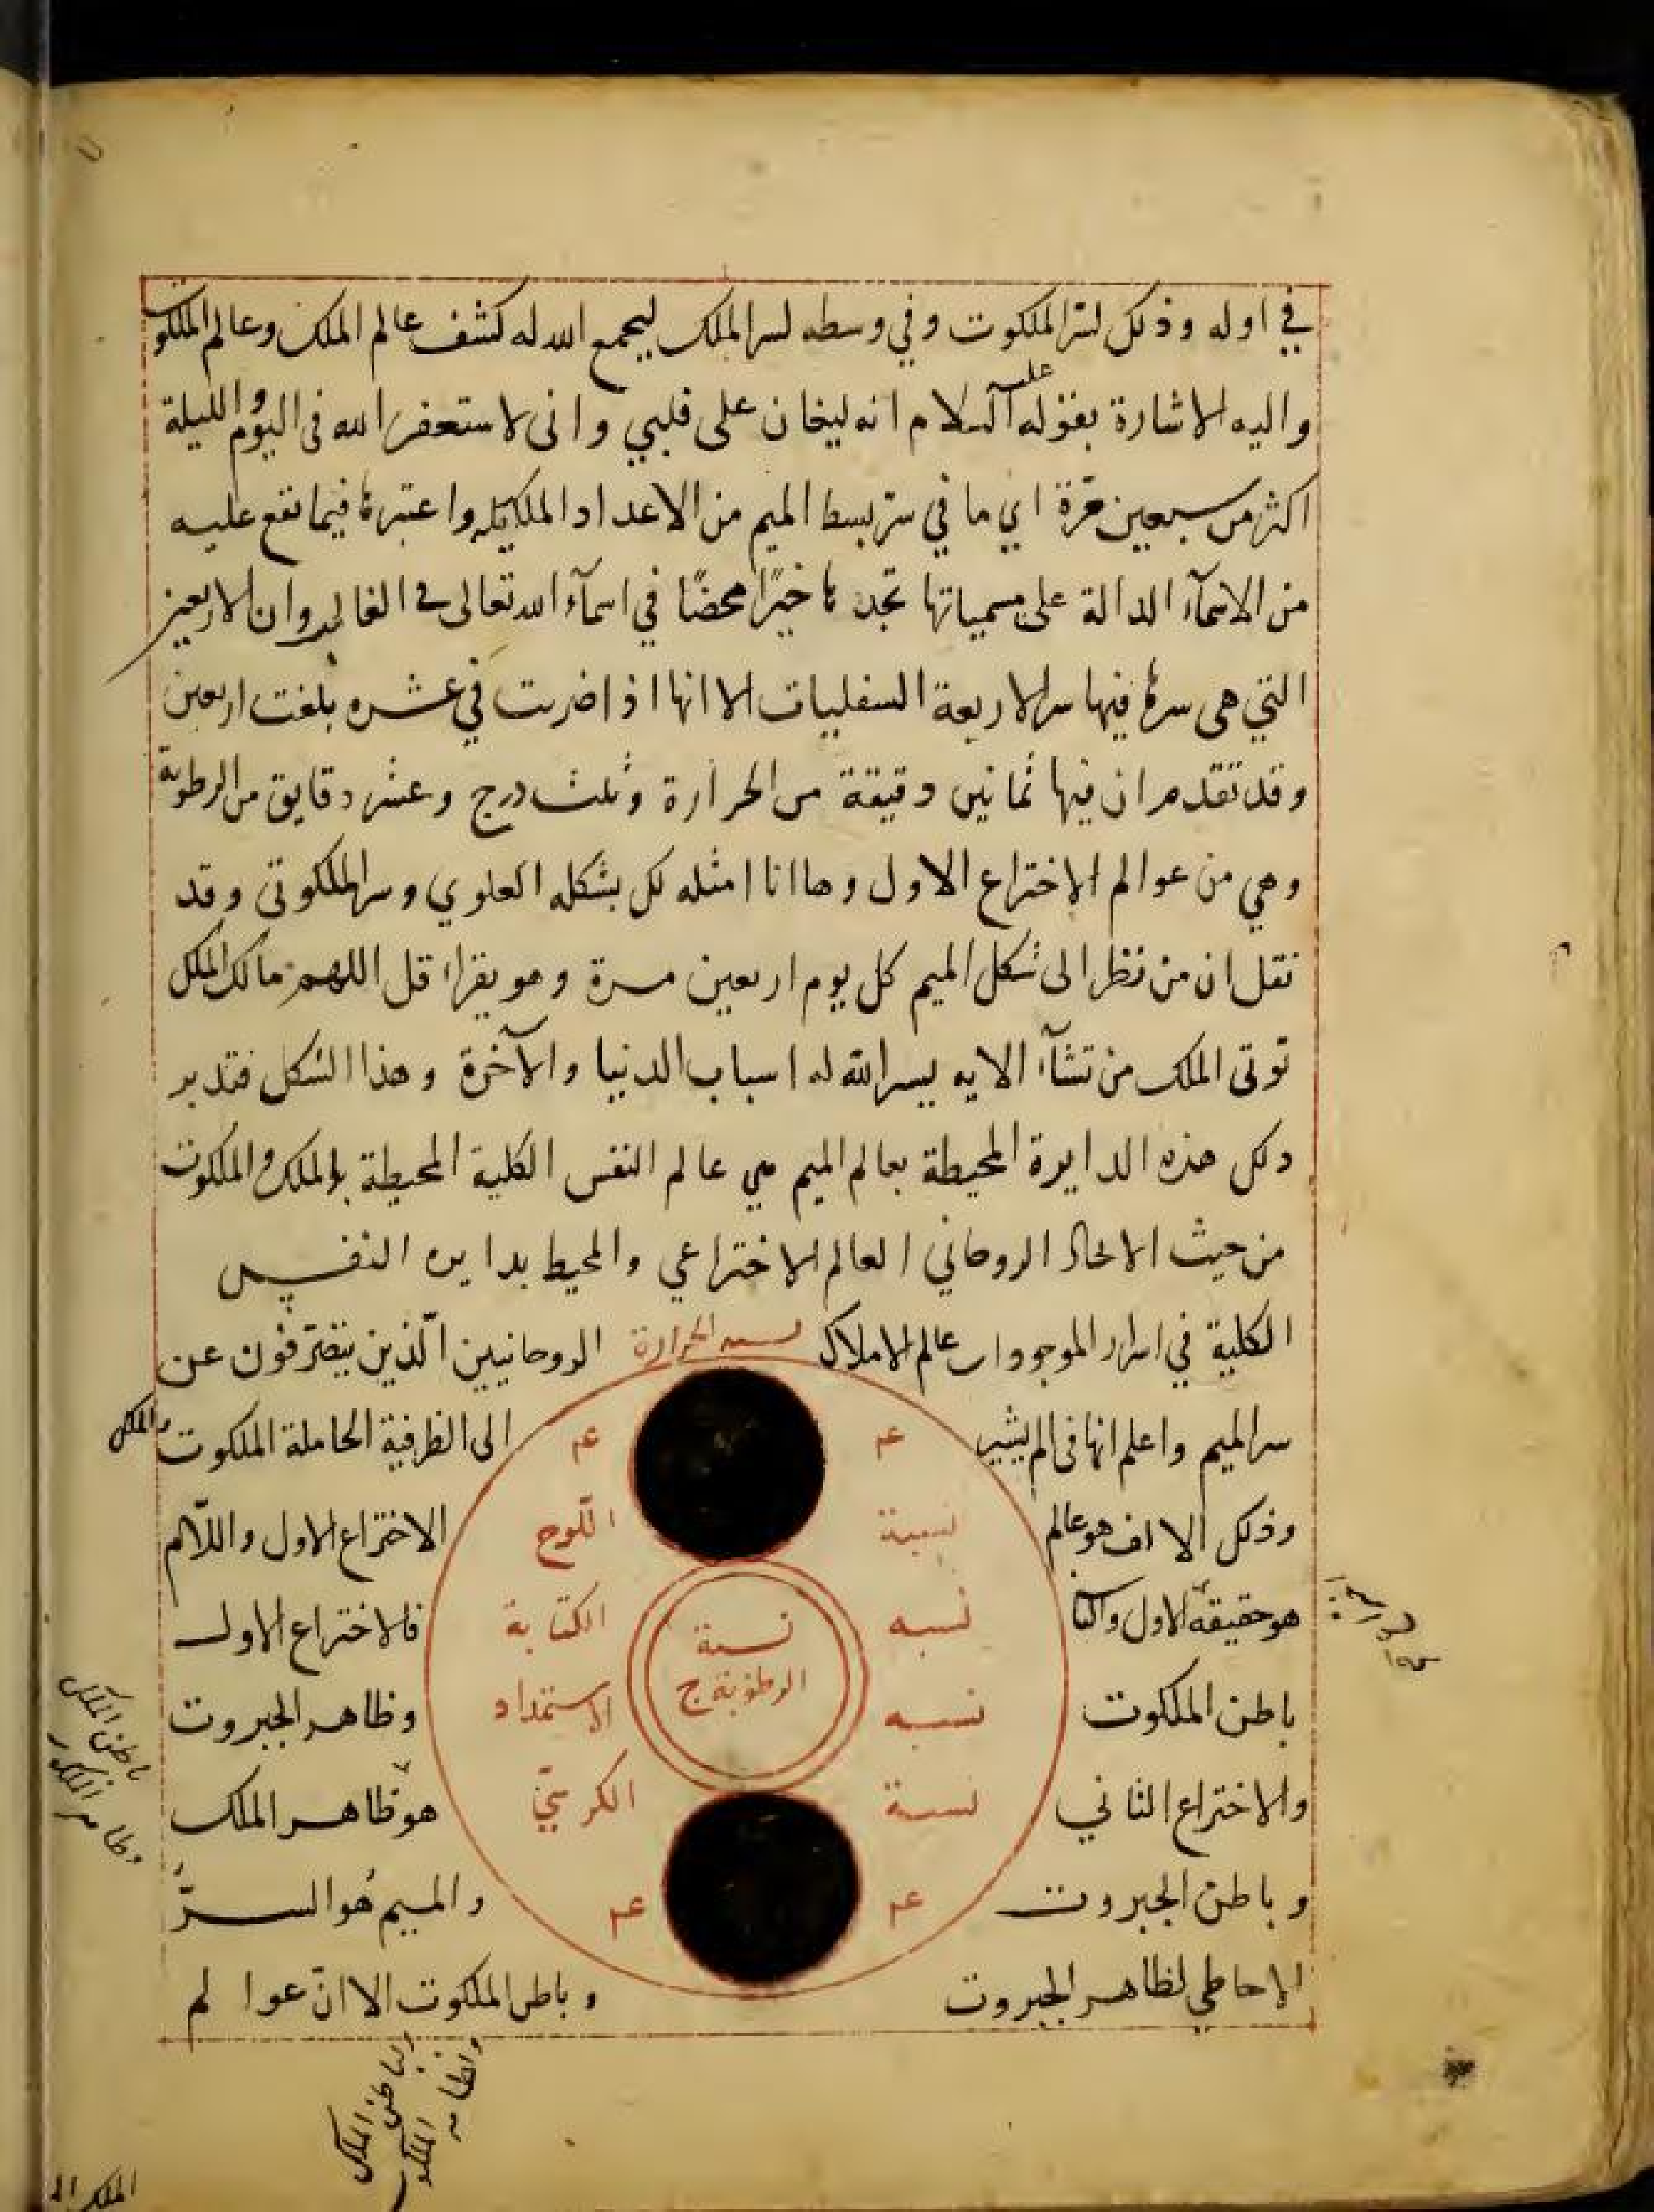 في اوله وذلك لسر الملكوت وفي وسطه لسر الملك ليجمع الله له كشف عالم الملك وعالم الملكوت
واليه الاشارة بقوله عليه السلام انه ليغان على قلبي واني لاستغفر الله في اليوم والليلة
اكثر من سبعين مرة اي ما في سر بسط الميم من الاعداد الملكية واعتبرها فيما تقع عليه
من الاسمآء الدالة على مسمياتها تجدها خيرًا محضًا في اسمآء الله تعالى في الغالب وان الاربعين
التي هي سرها فيها سر الاربعة السفليات الا انها اذا ضربت في عشره بلغت اربعين
وقد تقدم ان فيها ثمانين دقيقة من الحرارة وثلث درج وعشر دقايق من الرطوبة
وهي من عوالم الاختراع الاول وها انا امثله لك بشكله العلوي وسر الملكوتي وقد
نقل ان من نظر الى شكل الميم كل يوم اربعين مرة وهو يقراء قل اللهم مالك الملك
توتي الملك من تشآء الايه يسر الله له اسباب الدنيا والآخرة وهذا الشكل فتدبر
ولكل هذه الدايرة المحيطة بعالم الميم هي عالم النفس الكلية المحيطة بالملك والملكوت
من حيث الروحاني العالم الاختراعي والمحيط بدايره النفس
الكلية في اسرار الموجودات عالم الاملاك الروحانيين الذين يتصرفون عن
نسبه الحرارة
سر الميم واعلم انها في الم يشير الى الظرفية الحاملة الملكوت والملك
عم عم
وذلك الا الف هو عالم الاختراع الاول واللام
نسبة اللوح
هو حقيقة الاول فالاختراع الاول
نسبه الكتابة
نسبة
الرطوبة ج
باطن الملكوت وظاهر الجبروت
نسبه الاستمداد
والاختراع الثاني هو ظاهر الملك
نسبة الكرسي
وباطن الجبروت والميم هو السر
عم عم
الاحاطي لظاهر الجبروت وباطن الملكوت الا ان عوالم
باطن الملك
وظاهر الملكوت
والظاهر الملكوت
الباطن الملك